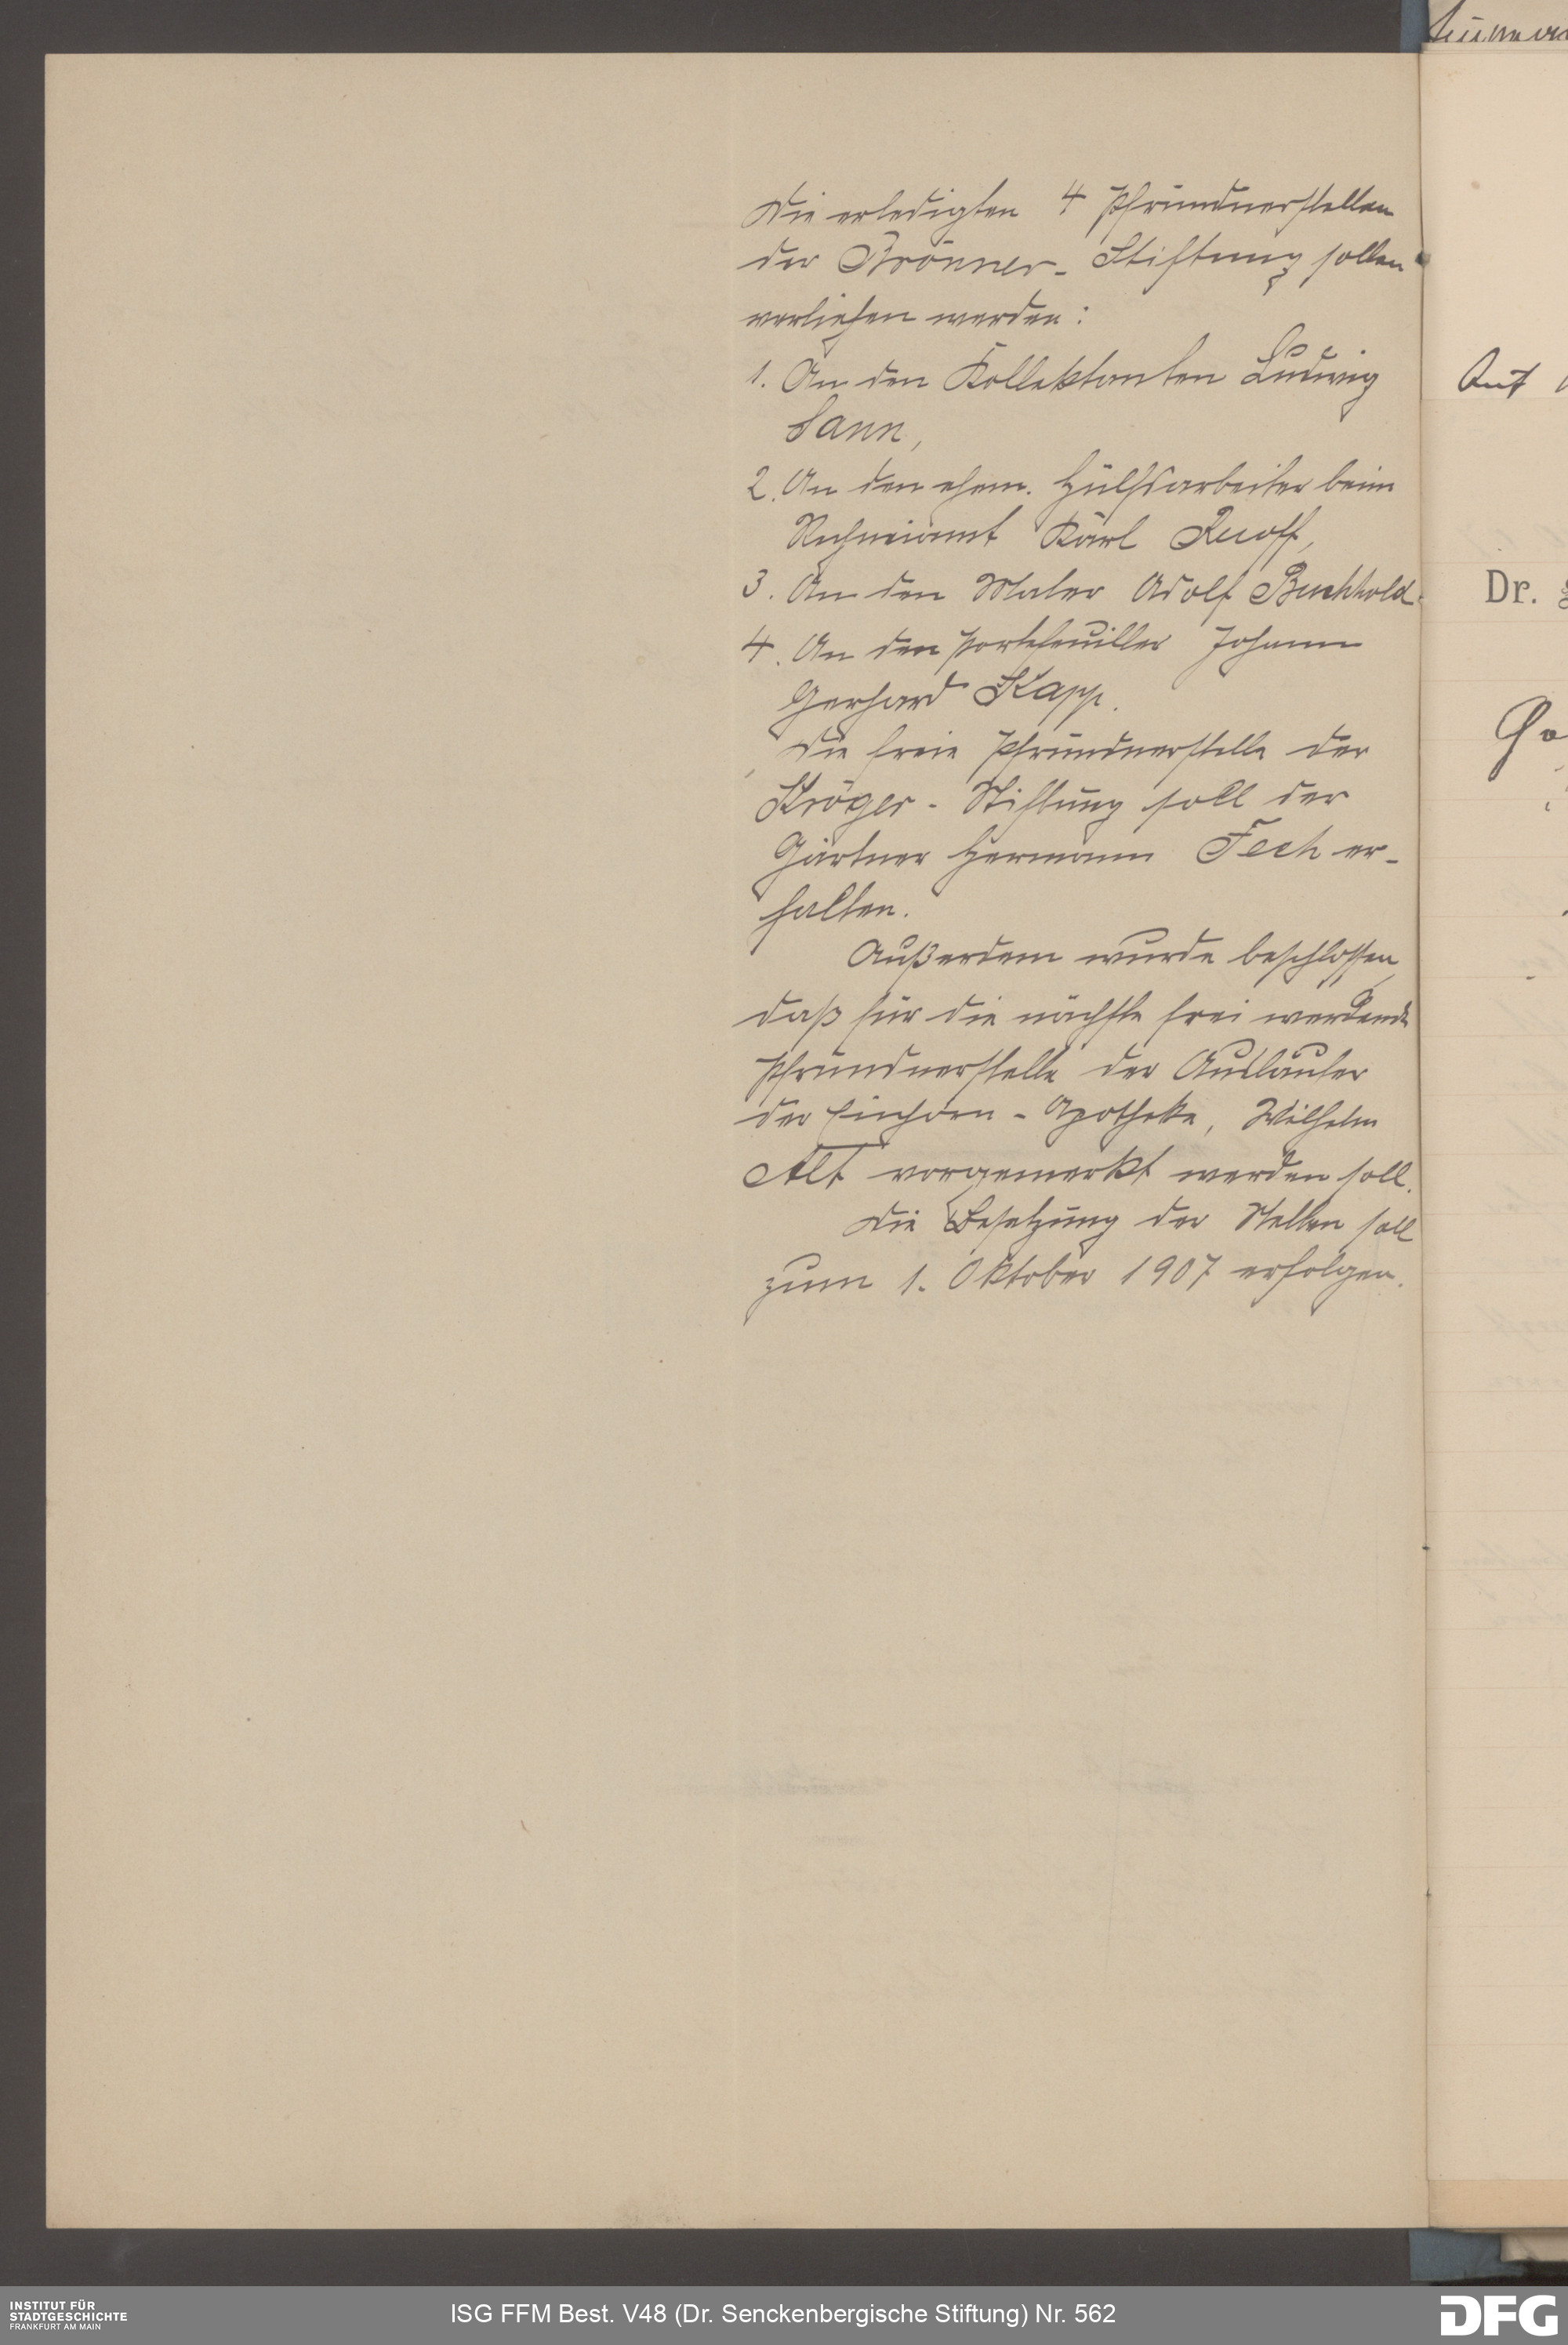 Die erledigten 4 Pfründnerstellen
der Brönner- Stiftung sollen
verliehen werden:
1. An den Kollektanten Ludwig
Sann,
2. An den ehem. Hülfsarbeiter beim
Rechneiamt Karl Ruoff,
3. An den Maler Adolf Buchhold.
4. An den Portefeuiller Johann
Gerhard Kapp.
Die freie Pfründnerstelle der
Kröger- Stiftung soll der
Gärtner Hermann Fech er-
halten.
Außerdem wurde beschlossen,
daß für die nächste frei werdende
Pfründnerstelle der Ausläufer
der Einhorn-Apotheke, Wilhelm
Alt vorgemerkt werden soll.
Die Besetzung der Stellen soll
zum 1. Oktober 1907 erfolgen.
Auf
Dr.
INSTITUT FÜR
STADTGESCHICHTE
FRANKFURT AM MAIN
ISG FFM Best. V48 (Dr. Senckenbergische Stiftung) Nr. 562
DFG